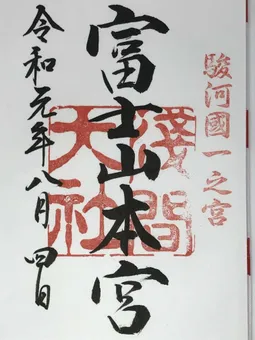 駿河國一之宮
富士山本宮
淺間大社
令和元年八月四日